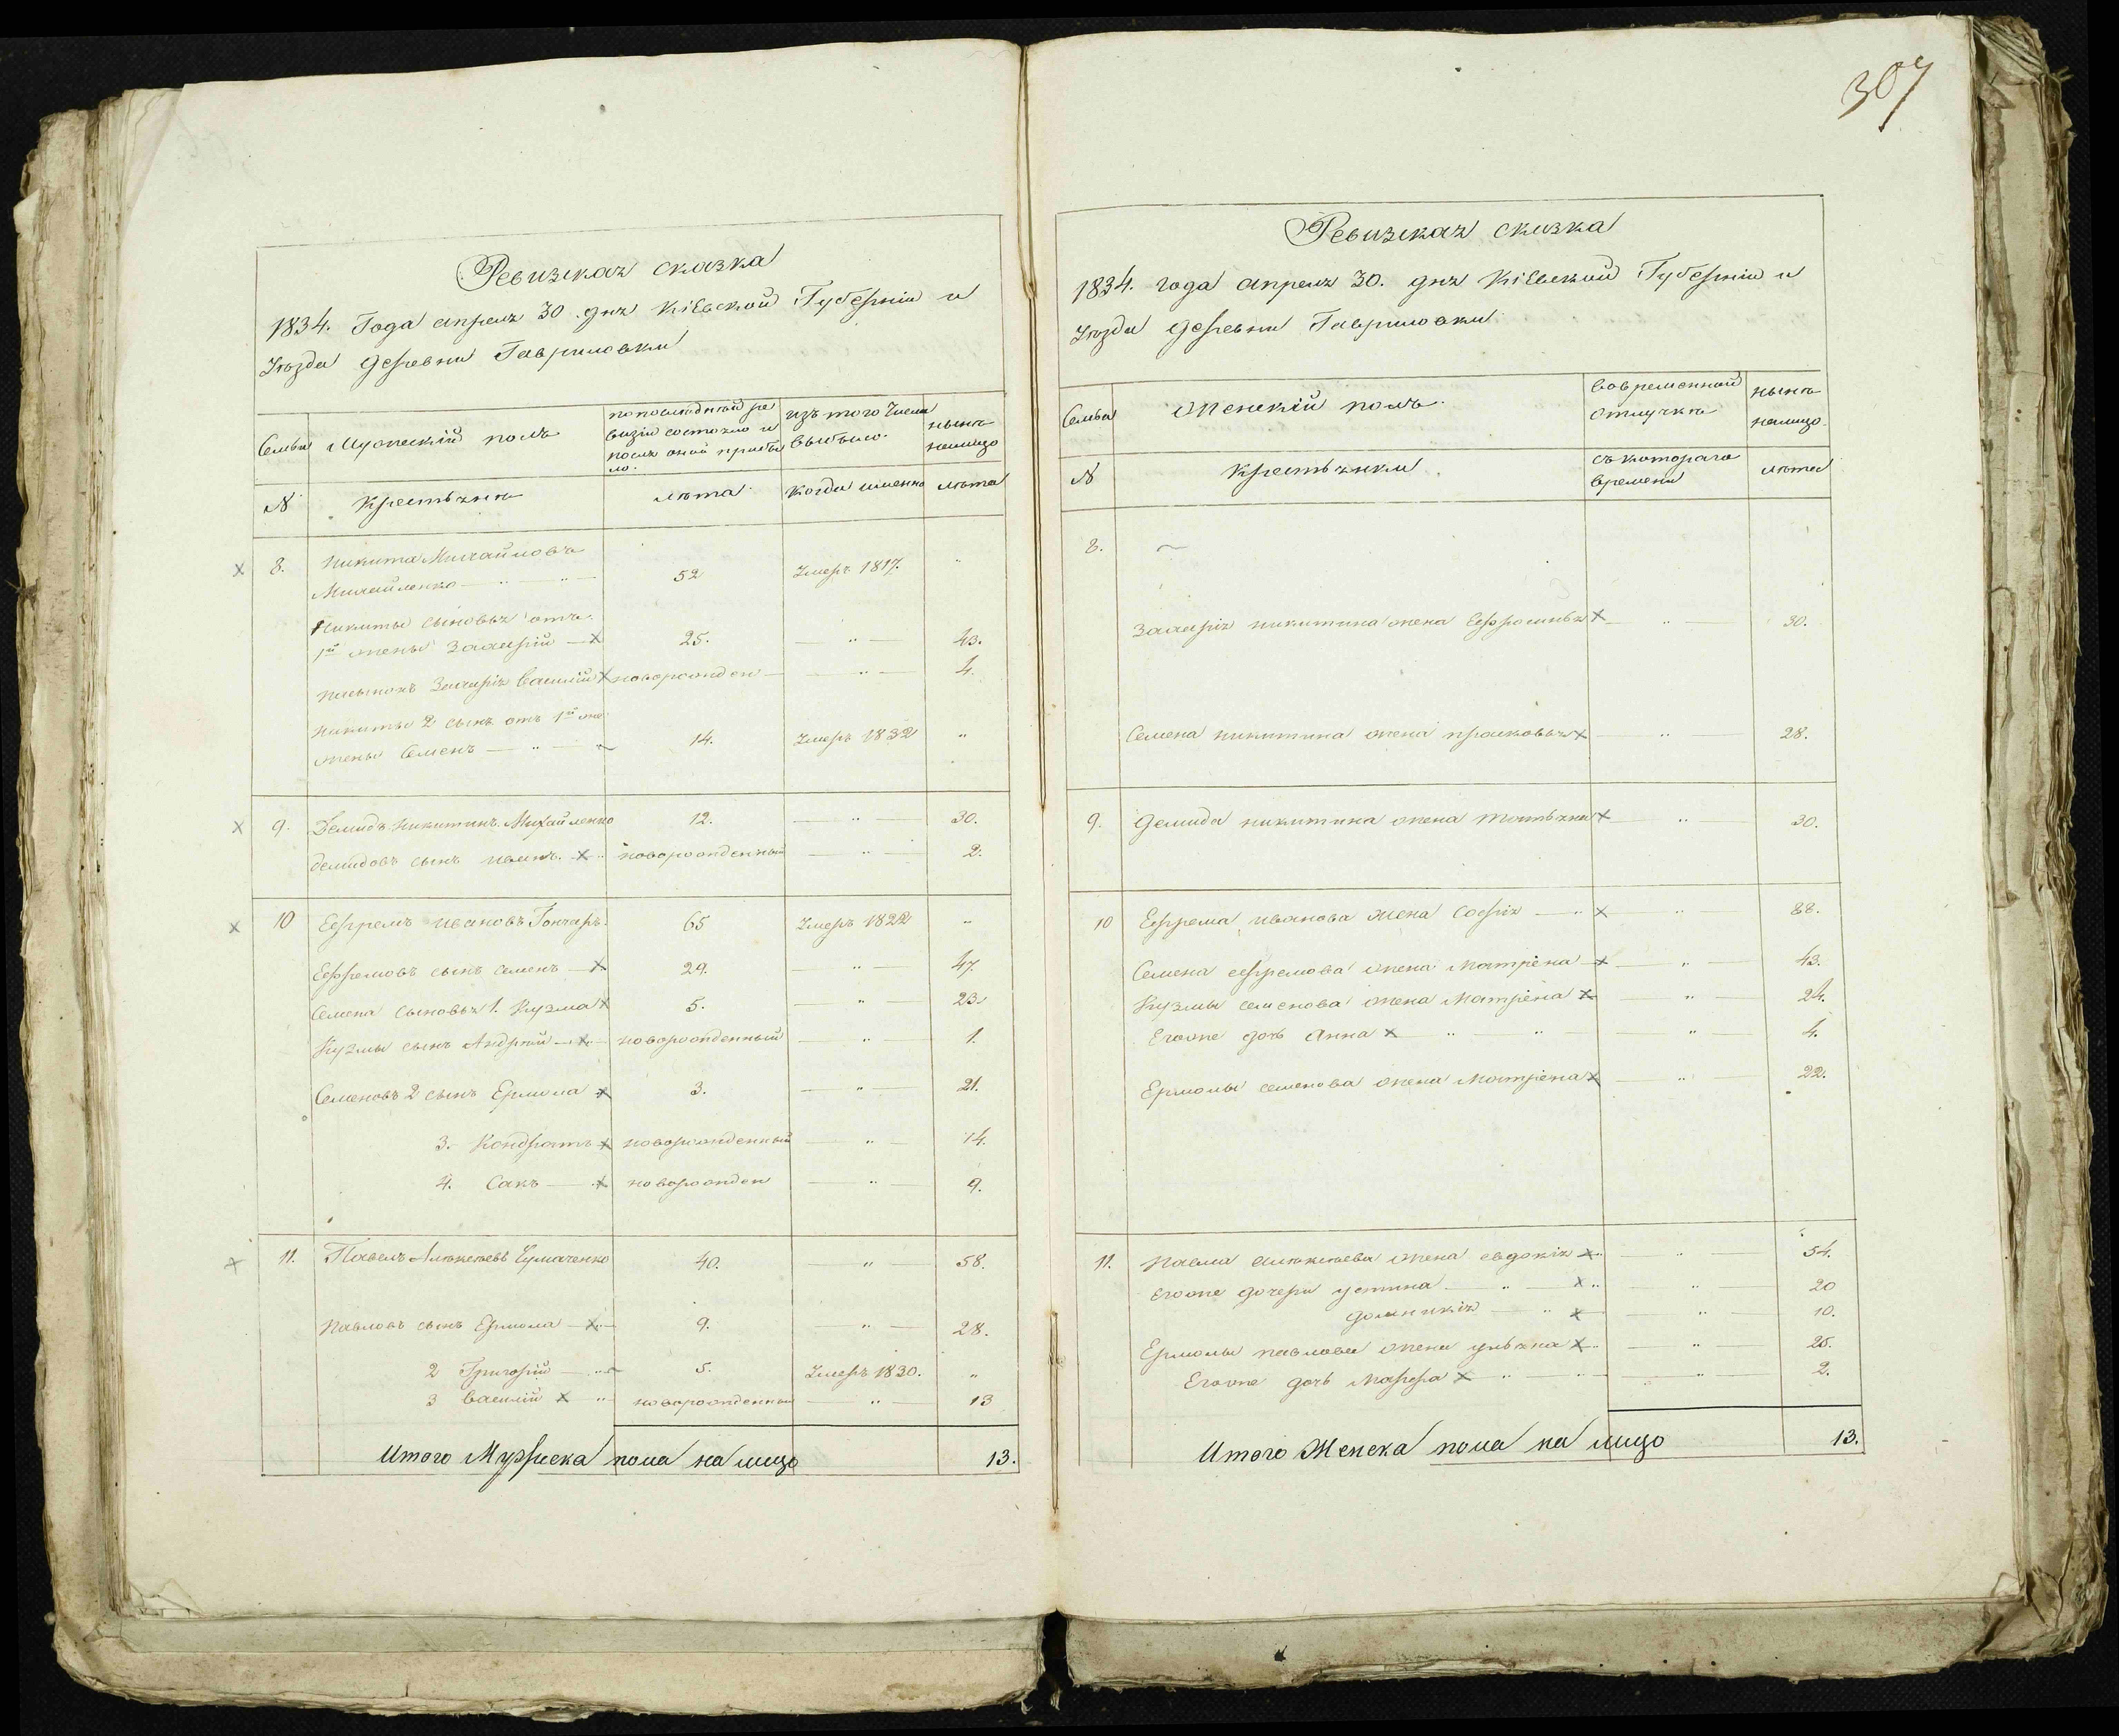 307
Ревизская сказка
1834. Года апреля 30 дня Кіевской Губерніи и
Уѣзда деревни Гавриловки
Семьи
Мужескій полъ
по последней ре
визіи состояло и
после оной прибы
ло.
изъ того числа
выбыло.
нынѣ
налицо
№
Крестьяне
лѣта
Когда именно
лѣта
8. Никита Михайловъ
Михайленко — " — " — 52 Умеръ 1817. "
Никиты сыновья отъ
1й жены Захарій — 25. " — 43.
пасынокъ Захарія Василій новорожден — " — 4.
Никиты 2 сынъ отъ 1й же
жены Семенъ — " — 14. Умеръ 1832 "
9. Демидъ Никитинъ Михайленко 12. — " — 30.
демидовъ сынъ иванъ. новорожденный — " — 2.
10 Ефремъ ивановъ Гончаръ. 65 Умеръ 1822 "
Ефремовъ сынъ семенъ — 29. " — 47.
Семена сыновья 1. Кузма 5. — " — 23.
Кузмы сынъ Андрей — новорожденный — " — 1.
Семеновъ 2 сынъ Ермола 3. — " — 21.
3. Кондратъ новорожденный — " — 14.
4. Сакъ — новорожден — " — 9.
11. Павелъ Алексеевъ 40. — " — 58.
Павловъ сынъ Ермола — 9. — " — 28.
2 Григорій — " 5. Умеръ 1830. "
3 василій " новорожденный — " — 13
Итого Мужеска пола на лицо 13.
Ревизская сказка
1834. года апреля 30. дня Кіевской Губерніи и
Уѣзда деревни Гавриловки
Семьи
Женскій полъ.
вовременной
отлучкѣ
нынѣ
налицо.
№
Крестьянки
съ котораго
времени
лѣта
8. ~
Захарія никитина жена Ефросинья — " — 30.
Семена никитина жена прасковья — " — 28.
9. Демида никитина жена татьяна — " — 30.
10 Ефрема иванова жена Софія — " — " — 88.
Семена ефремова жена Матрена — " — 43.
Кузмы семенова жена Матрена — " — 24.
Егоже дочь Анна — " — " — " — 4.
Ермолы семенова жена Матрена — " — 22.
11. Павла алексеева жена евдокія — " — 54.
Егоже дочери устина — " — " — 20
домникія — " — " — 10.
Ермолы павлова жена ульяна — " — 25.
Егоже дочь Марфа — " — " — " — 2.
Итого Женска пола на лицо 13.